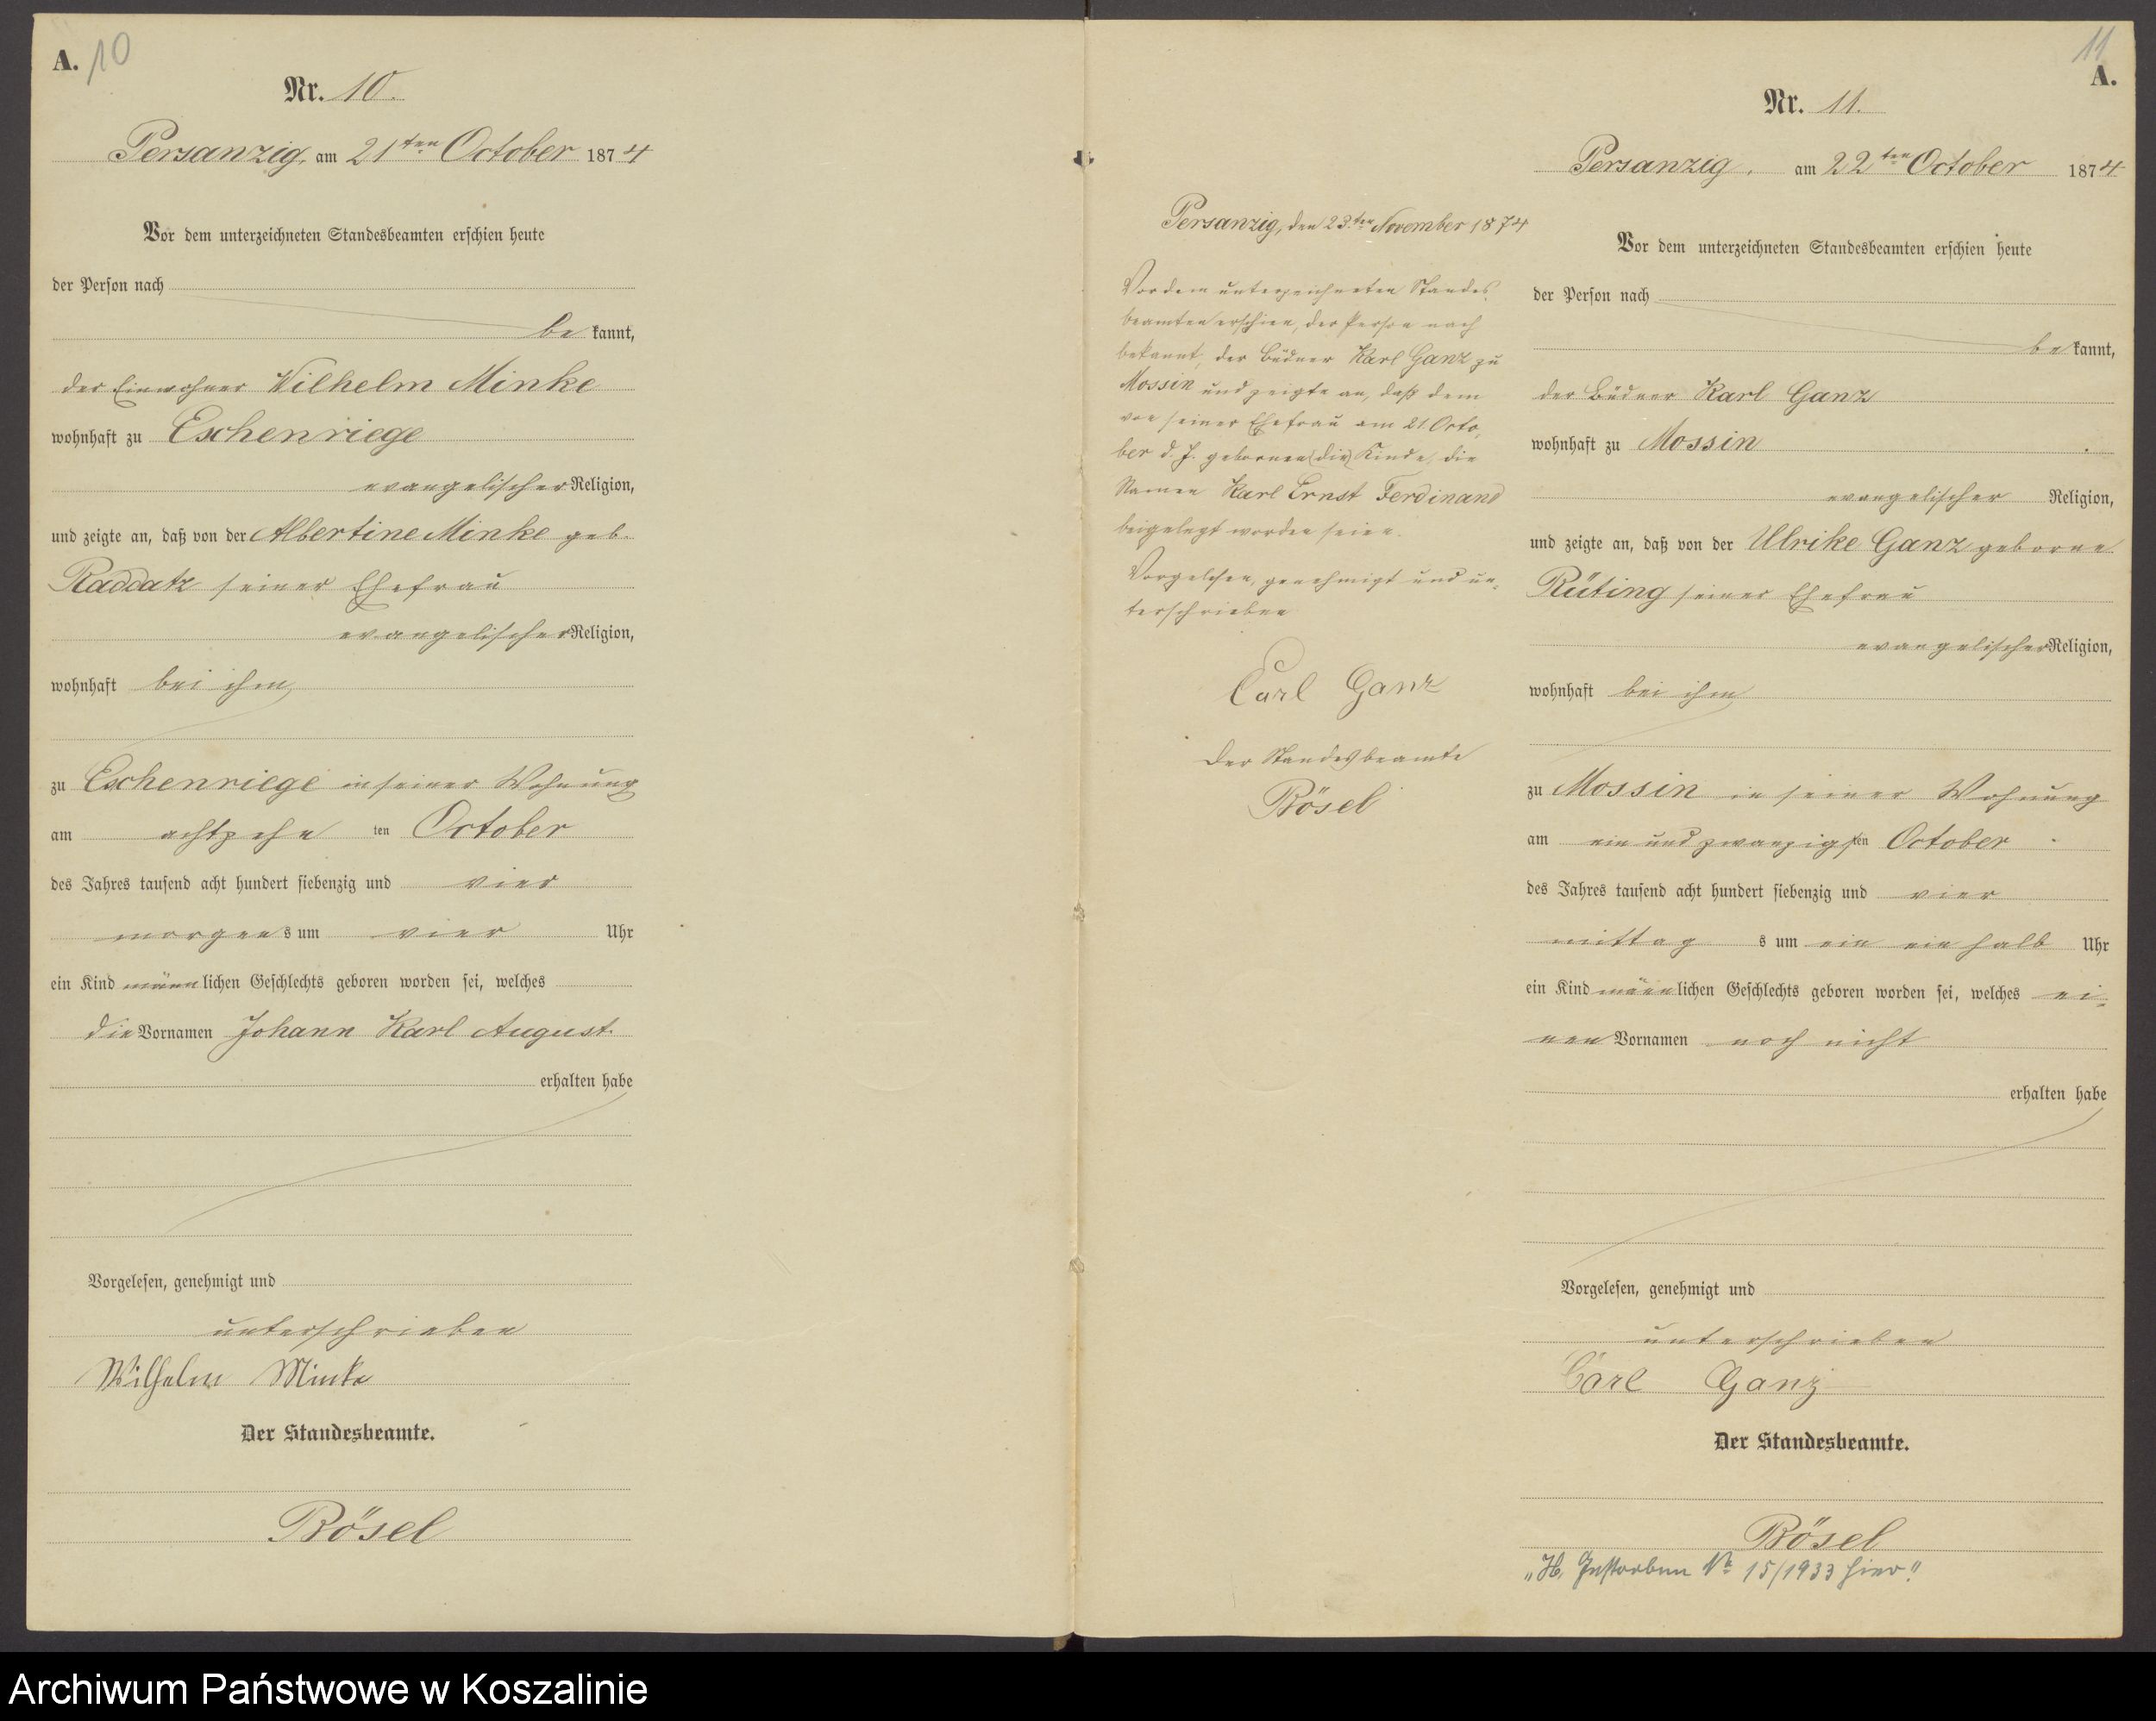 A. 10
Nr. 10.
Persanzig, am 21ten October 1874
Vor dem unterzeichneten Standesbeamten erschien heute
der Person nach
be kannt,
der Einwohner Wilhelm Minke
wohnhaft zu Eschenriege
evangelischer Religion,
und zeigte an, daß von der Albertine Minke geb.
Raddatz seiner Ehefrau
evangelischer Religion,
wohnhaft bei ihm
zu Eschenriege in seiner Wohnung
am achtzehn ten October
des Jahres tausend acht hundert siebenzig und vier
morgens um vier Uhr
ein Kind männlichen Geschlechts geboren worden sei, welches
die Vornamen Johann Karl August
erhalten habe
Vorgelesen, genehmigt und
unterschrieben
Wilhelm Minke
Der Standesbeamte.
Rösel
Persanzig, den 23ten November 1874
Vor dem unterzeichneten Standes-
beamten erschien, der Person nach
bekannt, der Büdner Karl Ganz zu
Mossin und zeigte an, daß dem
von seiner Ehefrau am 21. Octo-
ber d. J. gebornen Kinde, die
Namen Karl Ernst Ferdinand
beigelegt worden seien.
Vorgelesen, genehmigt und un-
terschrieben
Carl Ganz
Der Standesbeamte
Rösel
11
A.
Nr. 11.
Persanzig, am 22ten October 1874
Vor dem unterzeichneten Standesbeamten erschien heute
der Person nach
be kannt,
der Büdner Karl Ganz
wohnhaft zu Mossin
evangelischer Religion,
und zeigte an, daß von der Ulrike Ganz geborne
Rüting seiner Ehefrau
evangelischer Religion,
wohnhaft bei ihm
zu Mossin in seiner Wohnung
am ein und zwanzigsten October
des Jahres tausend acht hundert siebenzig und vier
mittags um ein ein halb Uhr
ein Kind männlichen Geschlechts geboren worden sei, welches ei-
nen Vornamen noch nicht
erhalten habe
Vorgelesen, genehmigt und
unterschrieben
Carl Ganz
Der Standesbeamte.
Rösel
"H. Gestorben Nr 15/1933 hier."
Archiwum Państwowe w Koszalinie